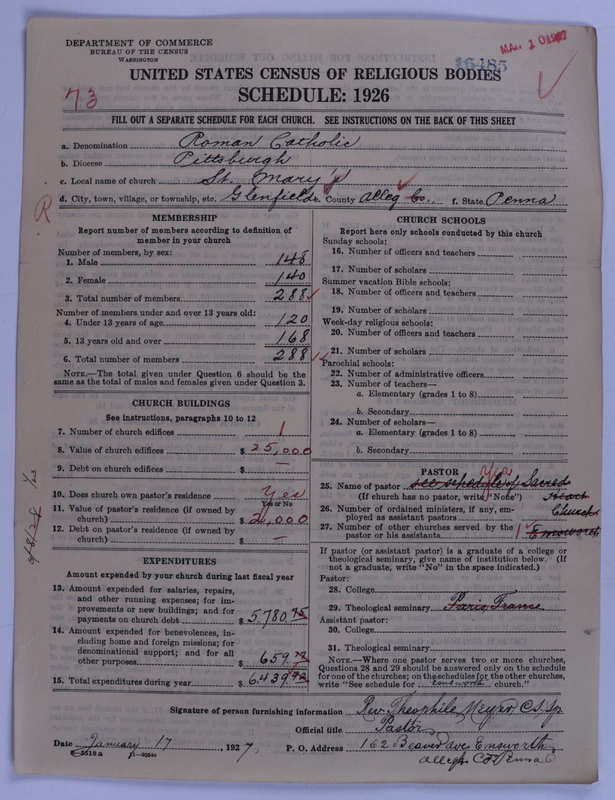 DEPARTMENT OF COMMERCE
BUREAU OF THE CENSUS
WASHINGTON
16485
UNITED STATES CENSUS OF RELIGIOUS BODIES
SCHEDULE: 1926
73
FILL OUT A SEPARATE SCHEDULE FOR EACH CHURCH. SEE INSTRUCTIONS ON THE BACK OF THIS SHEET
a. Denomination Roman Catholic
b. Diocese Pittsburgh
c. Local name of church St. Mary's
d. City, town, village, or township, etc. Glenfield e. County Alleg Co. f. State Penna
R
MEMBERSHIP
Report number of members according to definition of member in your church
Number of members, by sex:
1. Male 148
2. Female 140
3. Total number of members 288
Number of members under and over 13 years old:
4. Under 13 years of age 120
5. 13 years old and over 168
6. Total number of members 288
NOTE.—The total given under Question 6 should be the
same as the total of males and females given under Question 3.
CHURCH BUILDINGS
See instructions, paragraphs 10 to 12
7. Number of church edifices 1
8. Value of church edifices $ 25,000
9. Debt on church edifices $ —
10. Does church own pastor's residence Yes
Yes or No
11. Value of pastor's residence (if owned by
church) $ 2,000
12. Debt on pastor's residence (if owned by
church) $ —
EXPENDITURES
Amount expended by your church during last fiscal year
13. Amount expended for salaries, repairs,
and other running expenses; for im-
provements or new buildings; and for
payments on church debt $ 5,780.75
14. Amount expended for benevolences, in-
cluding home and foreign missions; for
denominational support; and for all
other purposes $ 659.17
15. Total expenditures during year $ 6,439.92
CHURCH SCHOOLS
Report here only schools conducted by this church
Sunday schools:
16. Number of officers and teachers
17. Number of scholars
Summer vacation Bible schools:
18. Number of officers and teachers
19. Number of scholars
Week-day religious schools:
20. Number of officers and teachers
21. Number of scholars
Parochial schools:
22. Number of administrative officers
23. Number of teachers—
a. Elementary (grades 1 to 8)
b. Secondary
24. Number of scholars—
a. Elementary (grades 1 to 8)
b. Secondary
PASTOR
Yes
25. Name of pastor see schedule of Sacred
(If church has no pastor, write "None") Heart
26. Number of ordained ministers, if any, em-
ployed as assistant pastors Church
27. Number of other churches served by the
pastor or his assistants 1 Emsworth
If pastor (or assistant pastor) is a graduate of a college or
theological seminary, give name of institution below. (If
not a graduate, write "No" in the space indicated.)
Pastor:
28. College
29. Theological seminary Paris, France
Assistant pastor:
30. College
31. Theological seminary
NOTE.—Where one pastor serves two or more churches,
Questions 28 and 29 should be answered only on the schedule
for one of the churches; on the schedules for the other churches,
write "See schedule for Emsworth church."
Signature of person furnishing information Rev Theophile Meyer C.S.Sp.
Official title Pastor
Date January 17, 1927. P. O. Address 162 Beaver ave. Emsworth
Allegh Co Penna